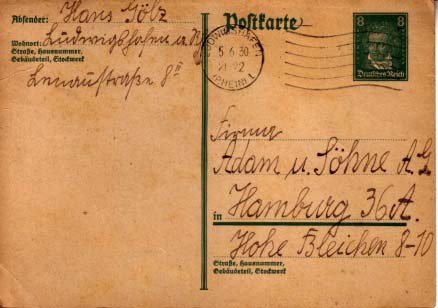 Absender: Hans Gölz
Wohnort: Ludwigshafen a. Rh.
Straße, Hausnummer,
Gebäudeteil, Stockwerk
Lenaustraße 8 II
Postkarte
LUDWIGSHAFEN
5.6.30
(RHEIN) 1
8 8
Deutsches Reich
Firma
Adam u. Söhne A.G.
in Hamburg 36 A.
Hohe Bleichen 8-10
Straße, Hausnummer,
Gebäudeteil, Stockwerk